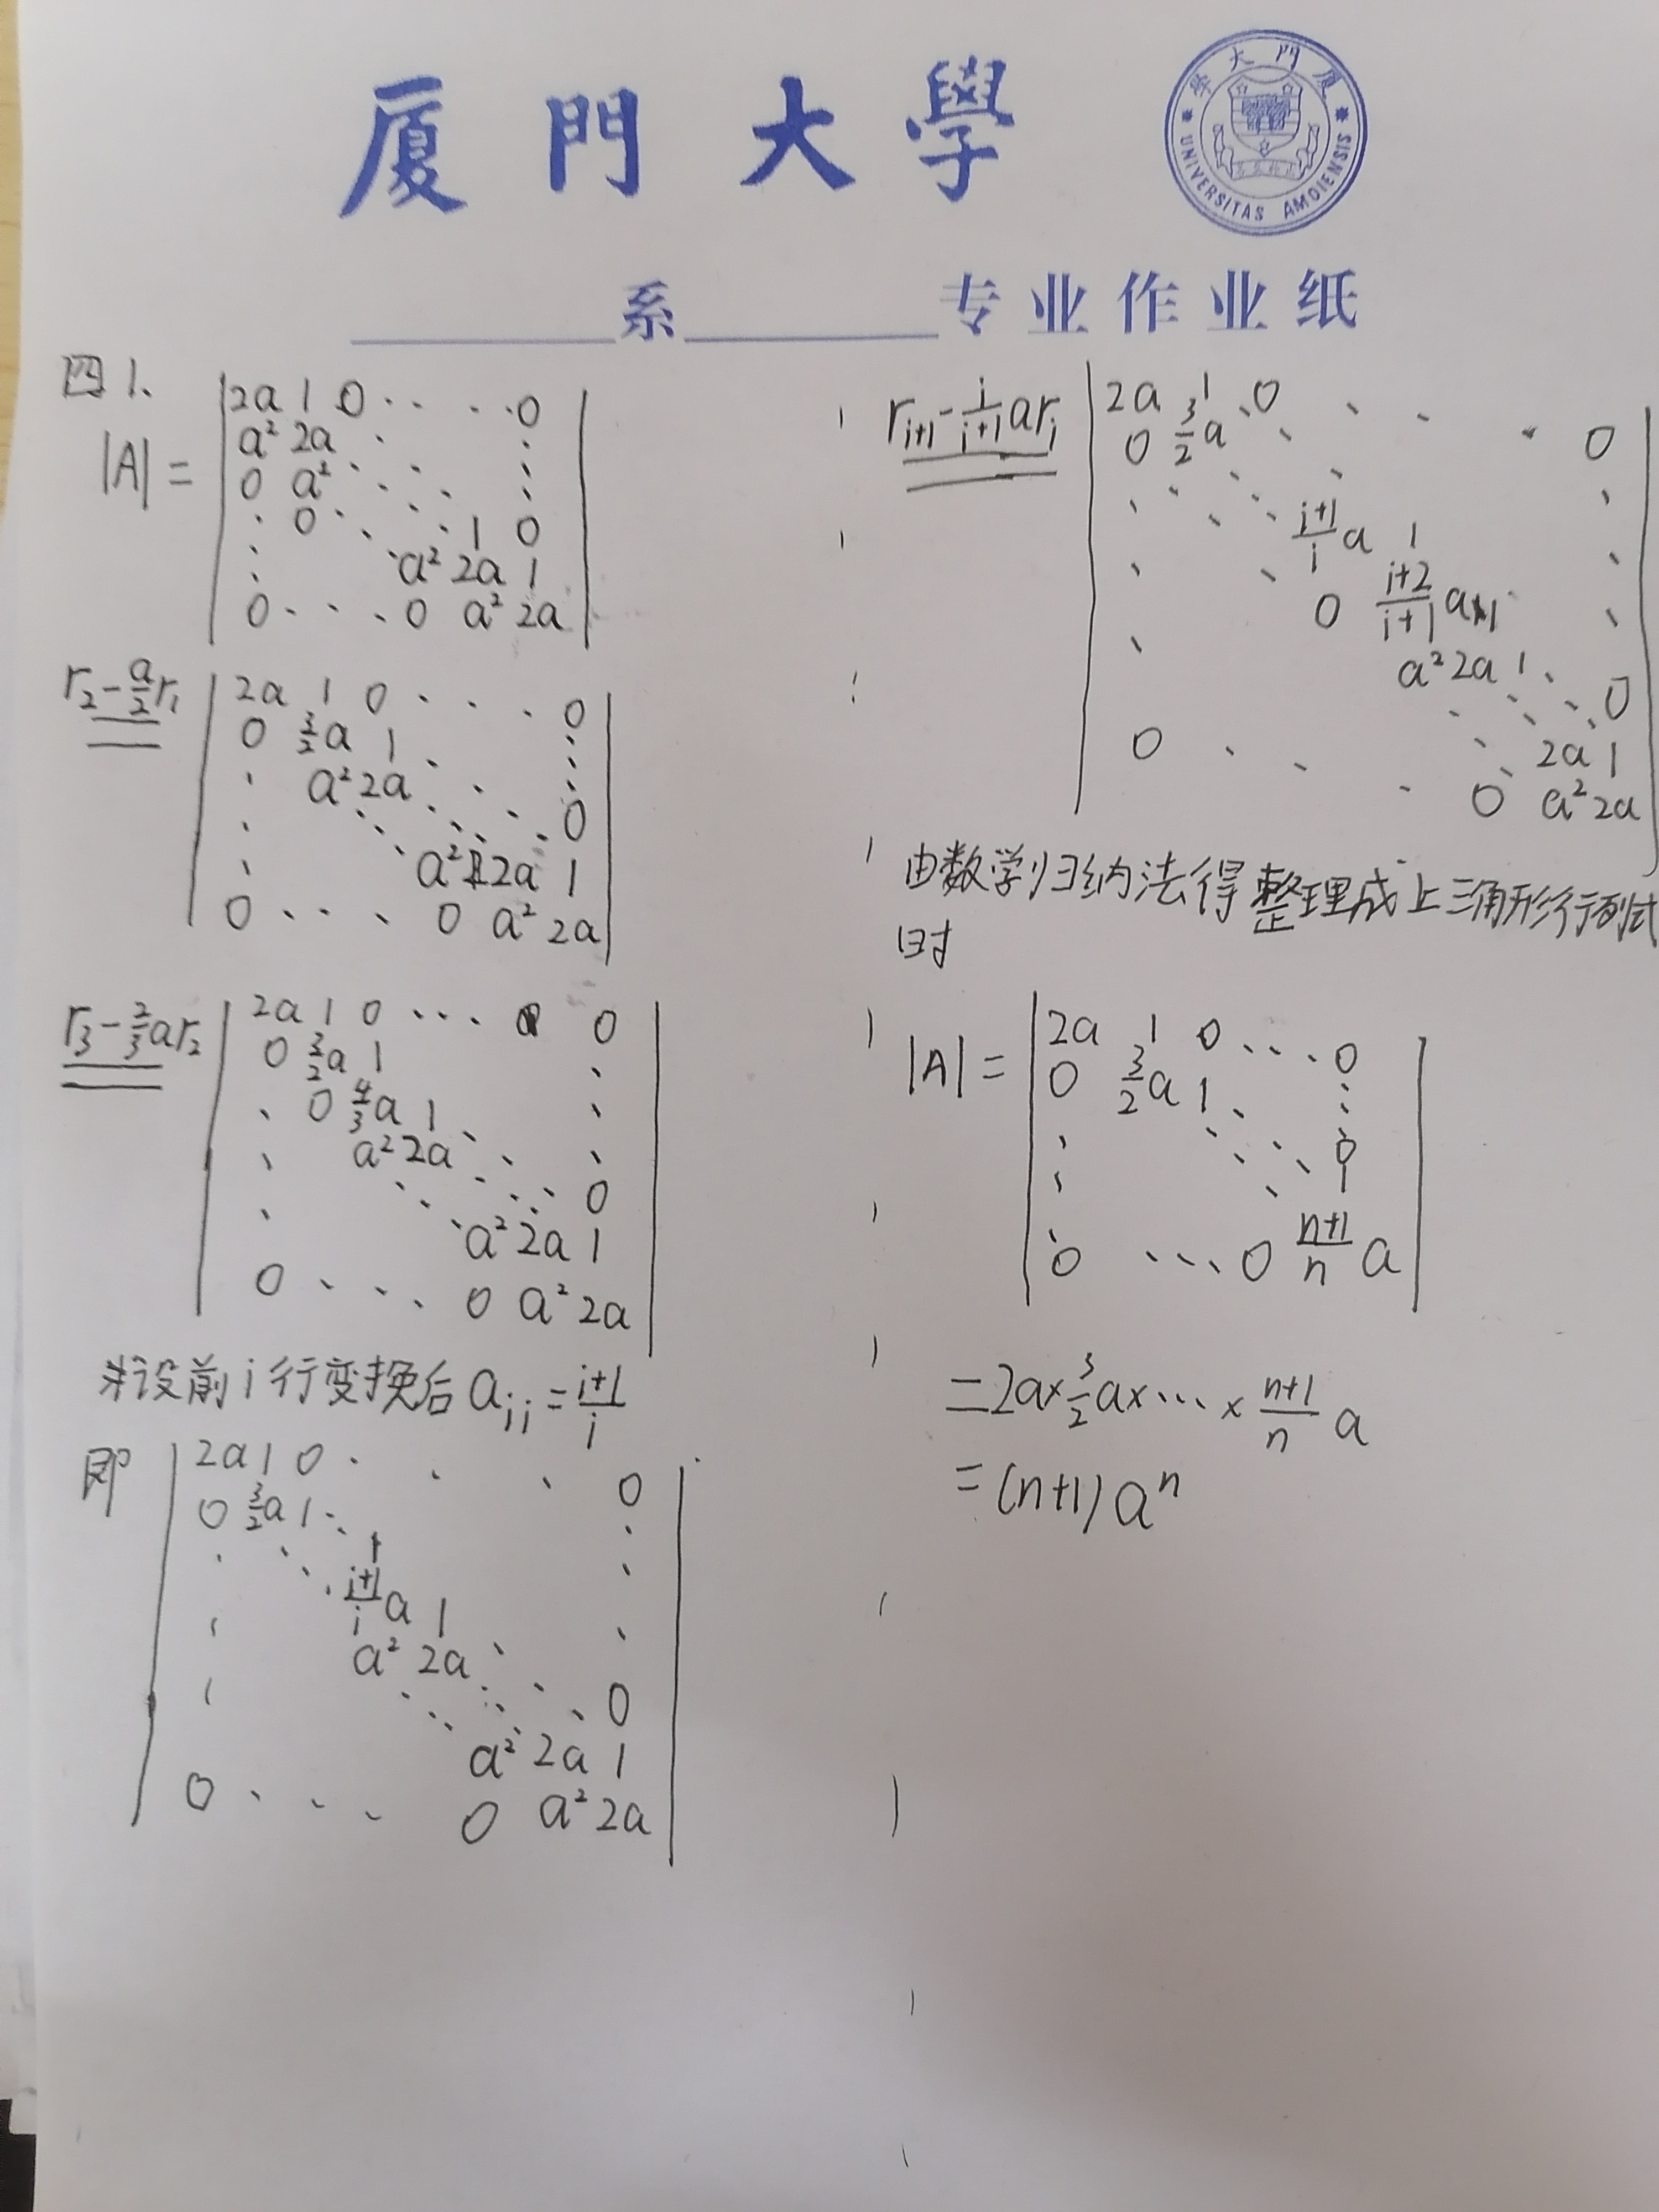 厦門大學
廈門大學
UNIVERSITAS AMOIENSIS
系 专业作业纸
四 1.
|A| =
2a 1 0 · · · · 0
a² 2a · ·
0 a² · · · ·
· 0 · · · 1 0
· · a² 2a 1
0 · · · 0 a² 2a
r₂ - a/2 r₁
2a 1 0 · · · 0
0 3/2a 1 · ·
· a² 2a · · ·
· · · · · · 0
· · a² 2a 1
0 · · · 0 a² 2a
r₃ - 2/3 a r₂
2a 1 0 · · · 0
0 3/2a 1 ·
· 0 4/3a 1 · ·
· a² 2a · ·
· · · · · 0
· · a² 2a 1
0 · · · 0 a² 2a
设前 i 行变换后 aᵢᵢ = i+1/i
即
2a 1 0 · · · 0
0 3/2a 1 · ·
· · · 1 ·
i+1/i a 1
a² 2a · ·
· · · · · 0
a² 2a 1
0 · · · 0 a² 2a
rᵢ₊₁ - i/i+1 a rᵢ
2a 1 0 · · ·
0 3/2a · · 0
· · · · · ·
· · · i+1/i a 1 ·
· · 0 i+2/i+1 a 1 ·
· a² 2a 1 · 0
0 · · 2a 1
· 0 a² 2a
由数学归纳法得整理成上三角形行列式
时
|A| =
2a 1 0 · · · 0
0 3/2a 1 · ·
· · · · 0
· · 1
0 · · · 0 n+1/n a
= 2a × 3/2 a × · · · × n+1/n a
= (n+1) aⁿ